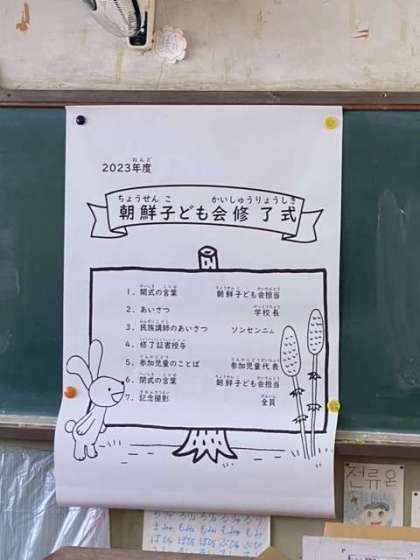 2023年度
ねんど
ちょうせん こ かいしゅうりょうしき
朝鮮子ども会修了式
1. 開式の言葉 朝鮮子ども会担当
2. あいさつ 学校長
3. 民族講師のあいさつ ソンセンニㇺ
4. 修了証書授与
5. 参加児童のことば 参加児童代表
6. 閉式の言葉 朝鮮子ども会担当
7. 記念撮影 全員
전류은